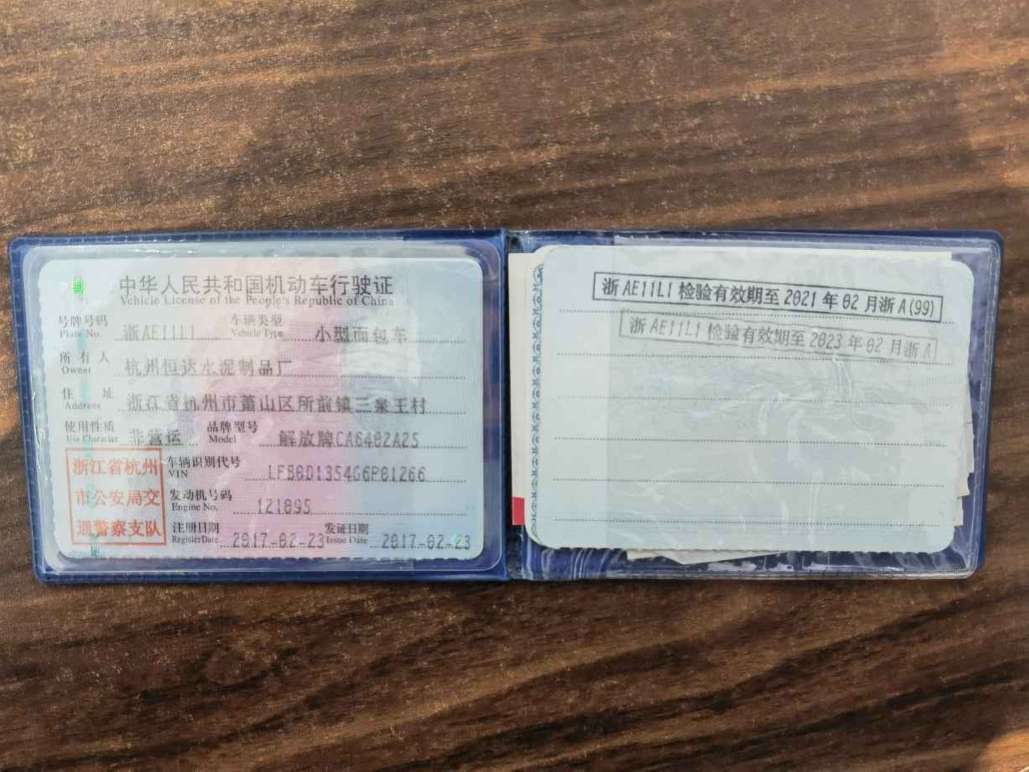 中华人民共和国机动车行驶证
Vehicle License of the People's Republic of China
号牌号码 浙AE11L1 车辆类型 小型面包车
Plate No. Vehicle Type
所有人 杭州恒达水泥制品厂
Owner
住址 浙江省杭州市萧山区所前镇三泉王村
Address
使用性质 非营运 品牌型号 解放牌CA6402A25
Use Character Model
浙江省杭州
市公安局交
通警察支队
车辆识别代号 LFB0D1354G6P81266
VIN
发动机号码 121895
Engine No.
注册日期 2017-02-23 发证日期 2017-02-23
Register Date Issue Date
浙AE11L1检验有效期至2021年02月浙A(99)
浙AE11L1检验有效期至2023年02月浙A